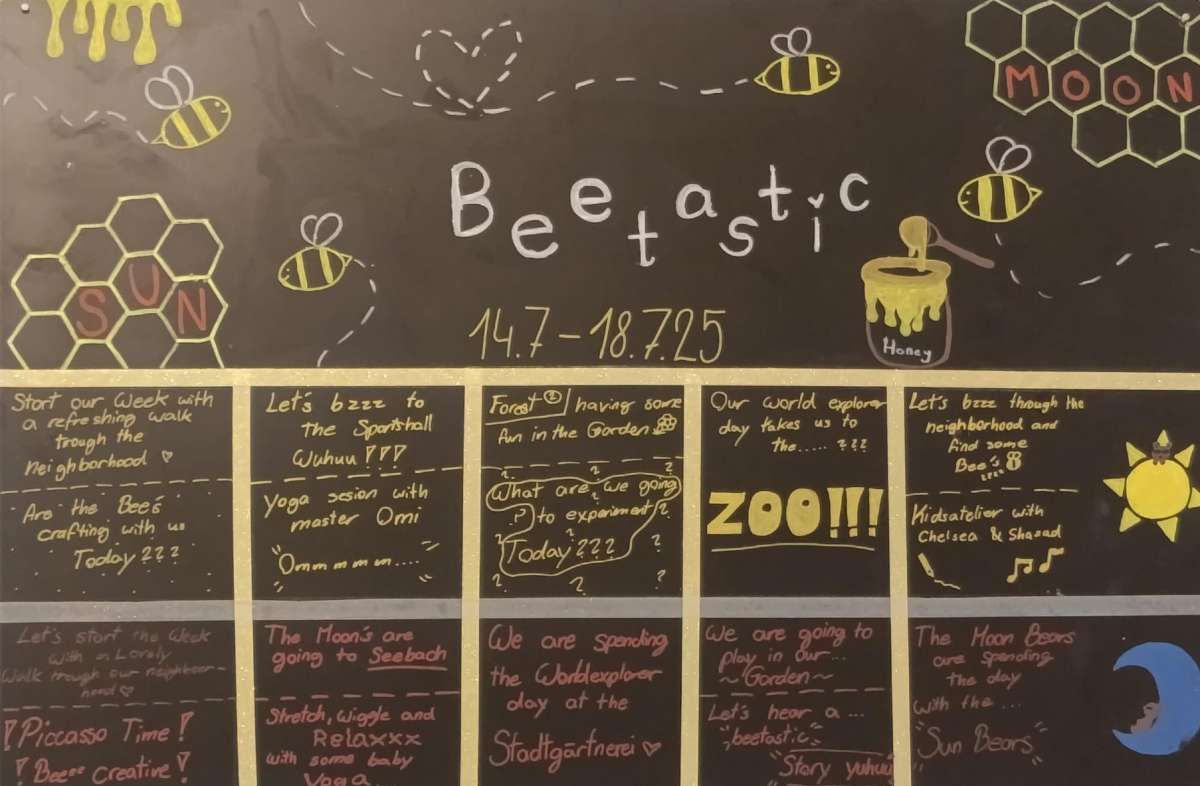 MOON
Beetastic
SUN
14.7 - 18.7.25
Honey
Start our Week with
a refreshing walk
trough the
neighborhood
Are the Bee's
crafting with us
Today???
Let's bzzz to
the Sportshall
Wuhuu!!!
Yoga sesion with
master Omi
"Ommmmm...."
Forest having some
fun in the Garden
What are we going
to experiment
Today???
Our world explorer
day takes us to
the..... ???
ZOO!!!
Let's bzzz through the
neighborhood and
find some
Bee's
Kidsatelier with
Chelsea &
Let's start the Week
with a Lovely
Walk trough our neighbor-
hood
!Piccasso Time!
!Beeee Creative!
The Moon's are
going to Seebach
Stretch, Wiggle and
Relaxxx
with some baby
Yoga
We are spending
the Worldexplorer
day at the
Stadtgärtnerei
We are going to
play in our...
~Garden~
Let's hear a ...
"beetastic"
Story yuhuu
The Moon Bears
are spending
the day
with the ...
"Sun Bears"